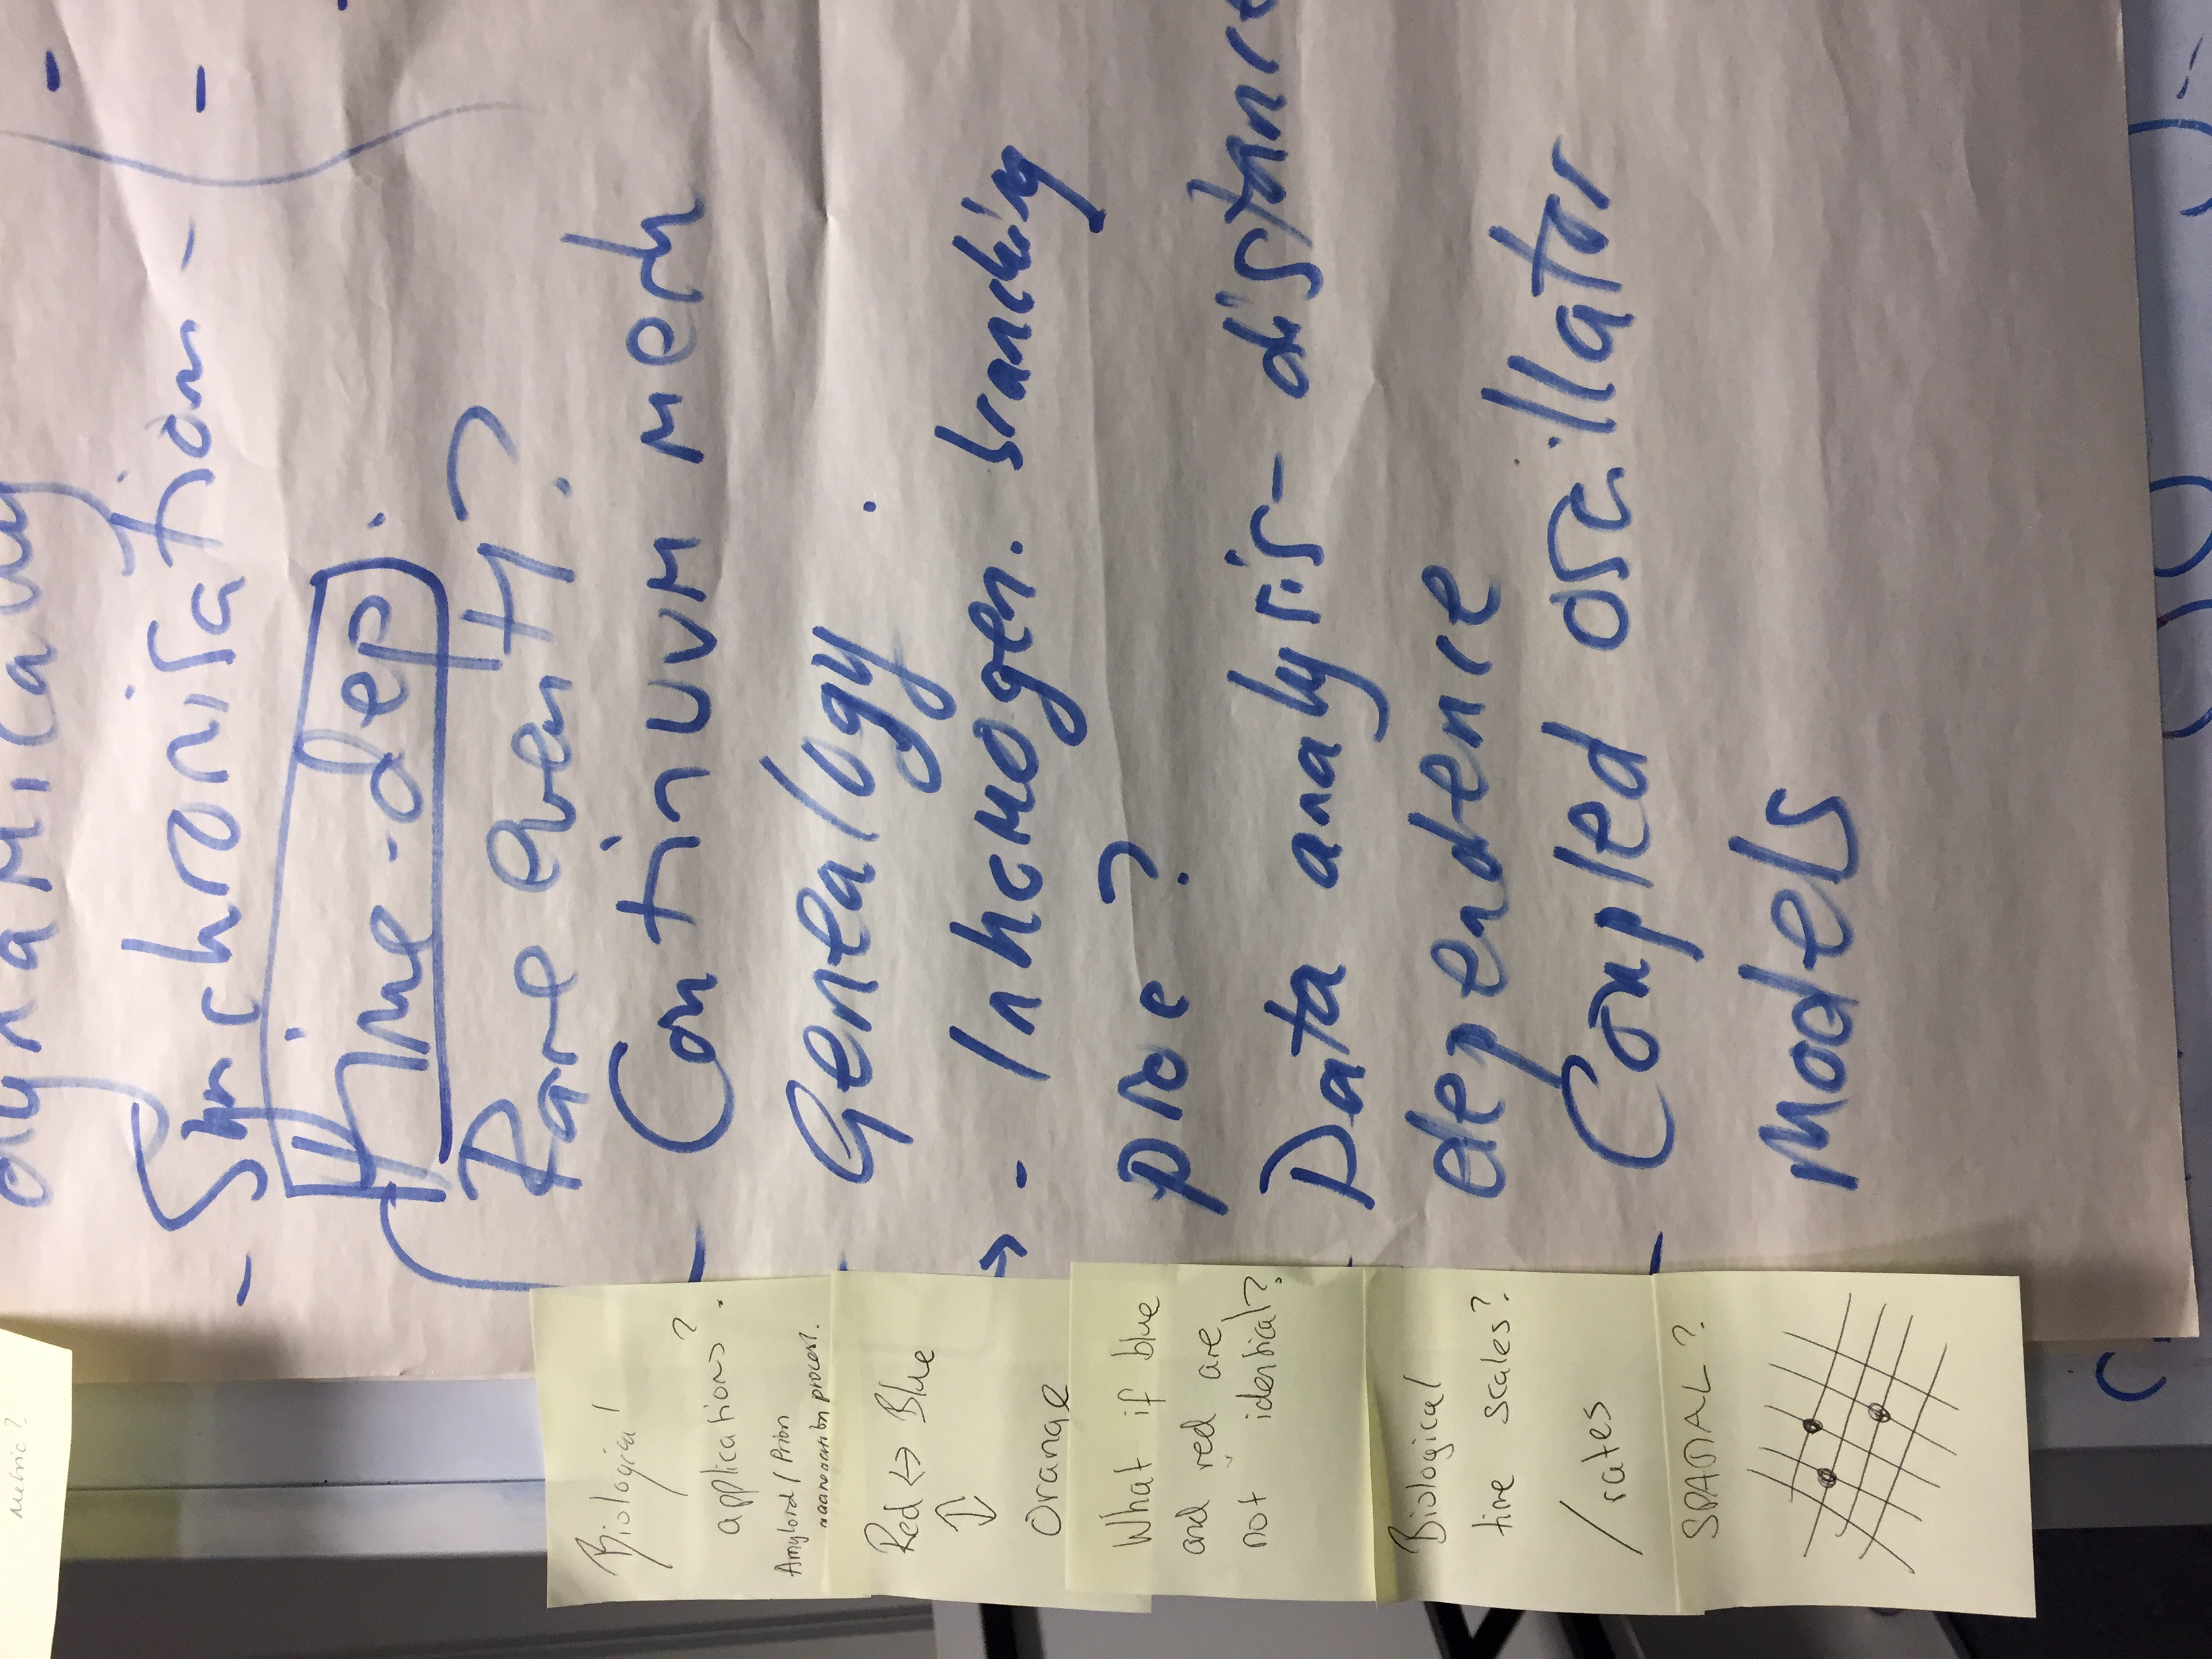 dynamically
- Synchronisation -
time-dep.
Rare event?
- Continuum mech
Genealogy.
→ - Inhomogen. branching
proc?
Data analysis - distance
dependence
- Coupled oscillator
models
Metric?
Biological
applications?
Amyloid / Prion
process.
Red ↔ Blue
↕
Orange
What if blue
and red are
not identical?
Biological
time scales?
/ rates
SPATIAL?